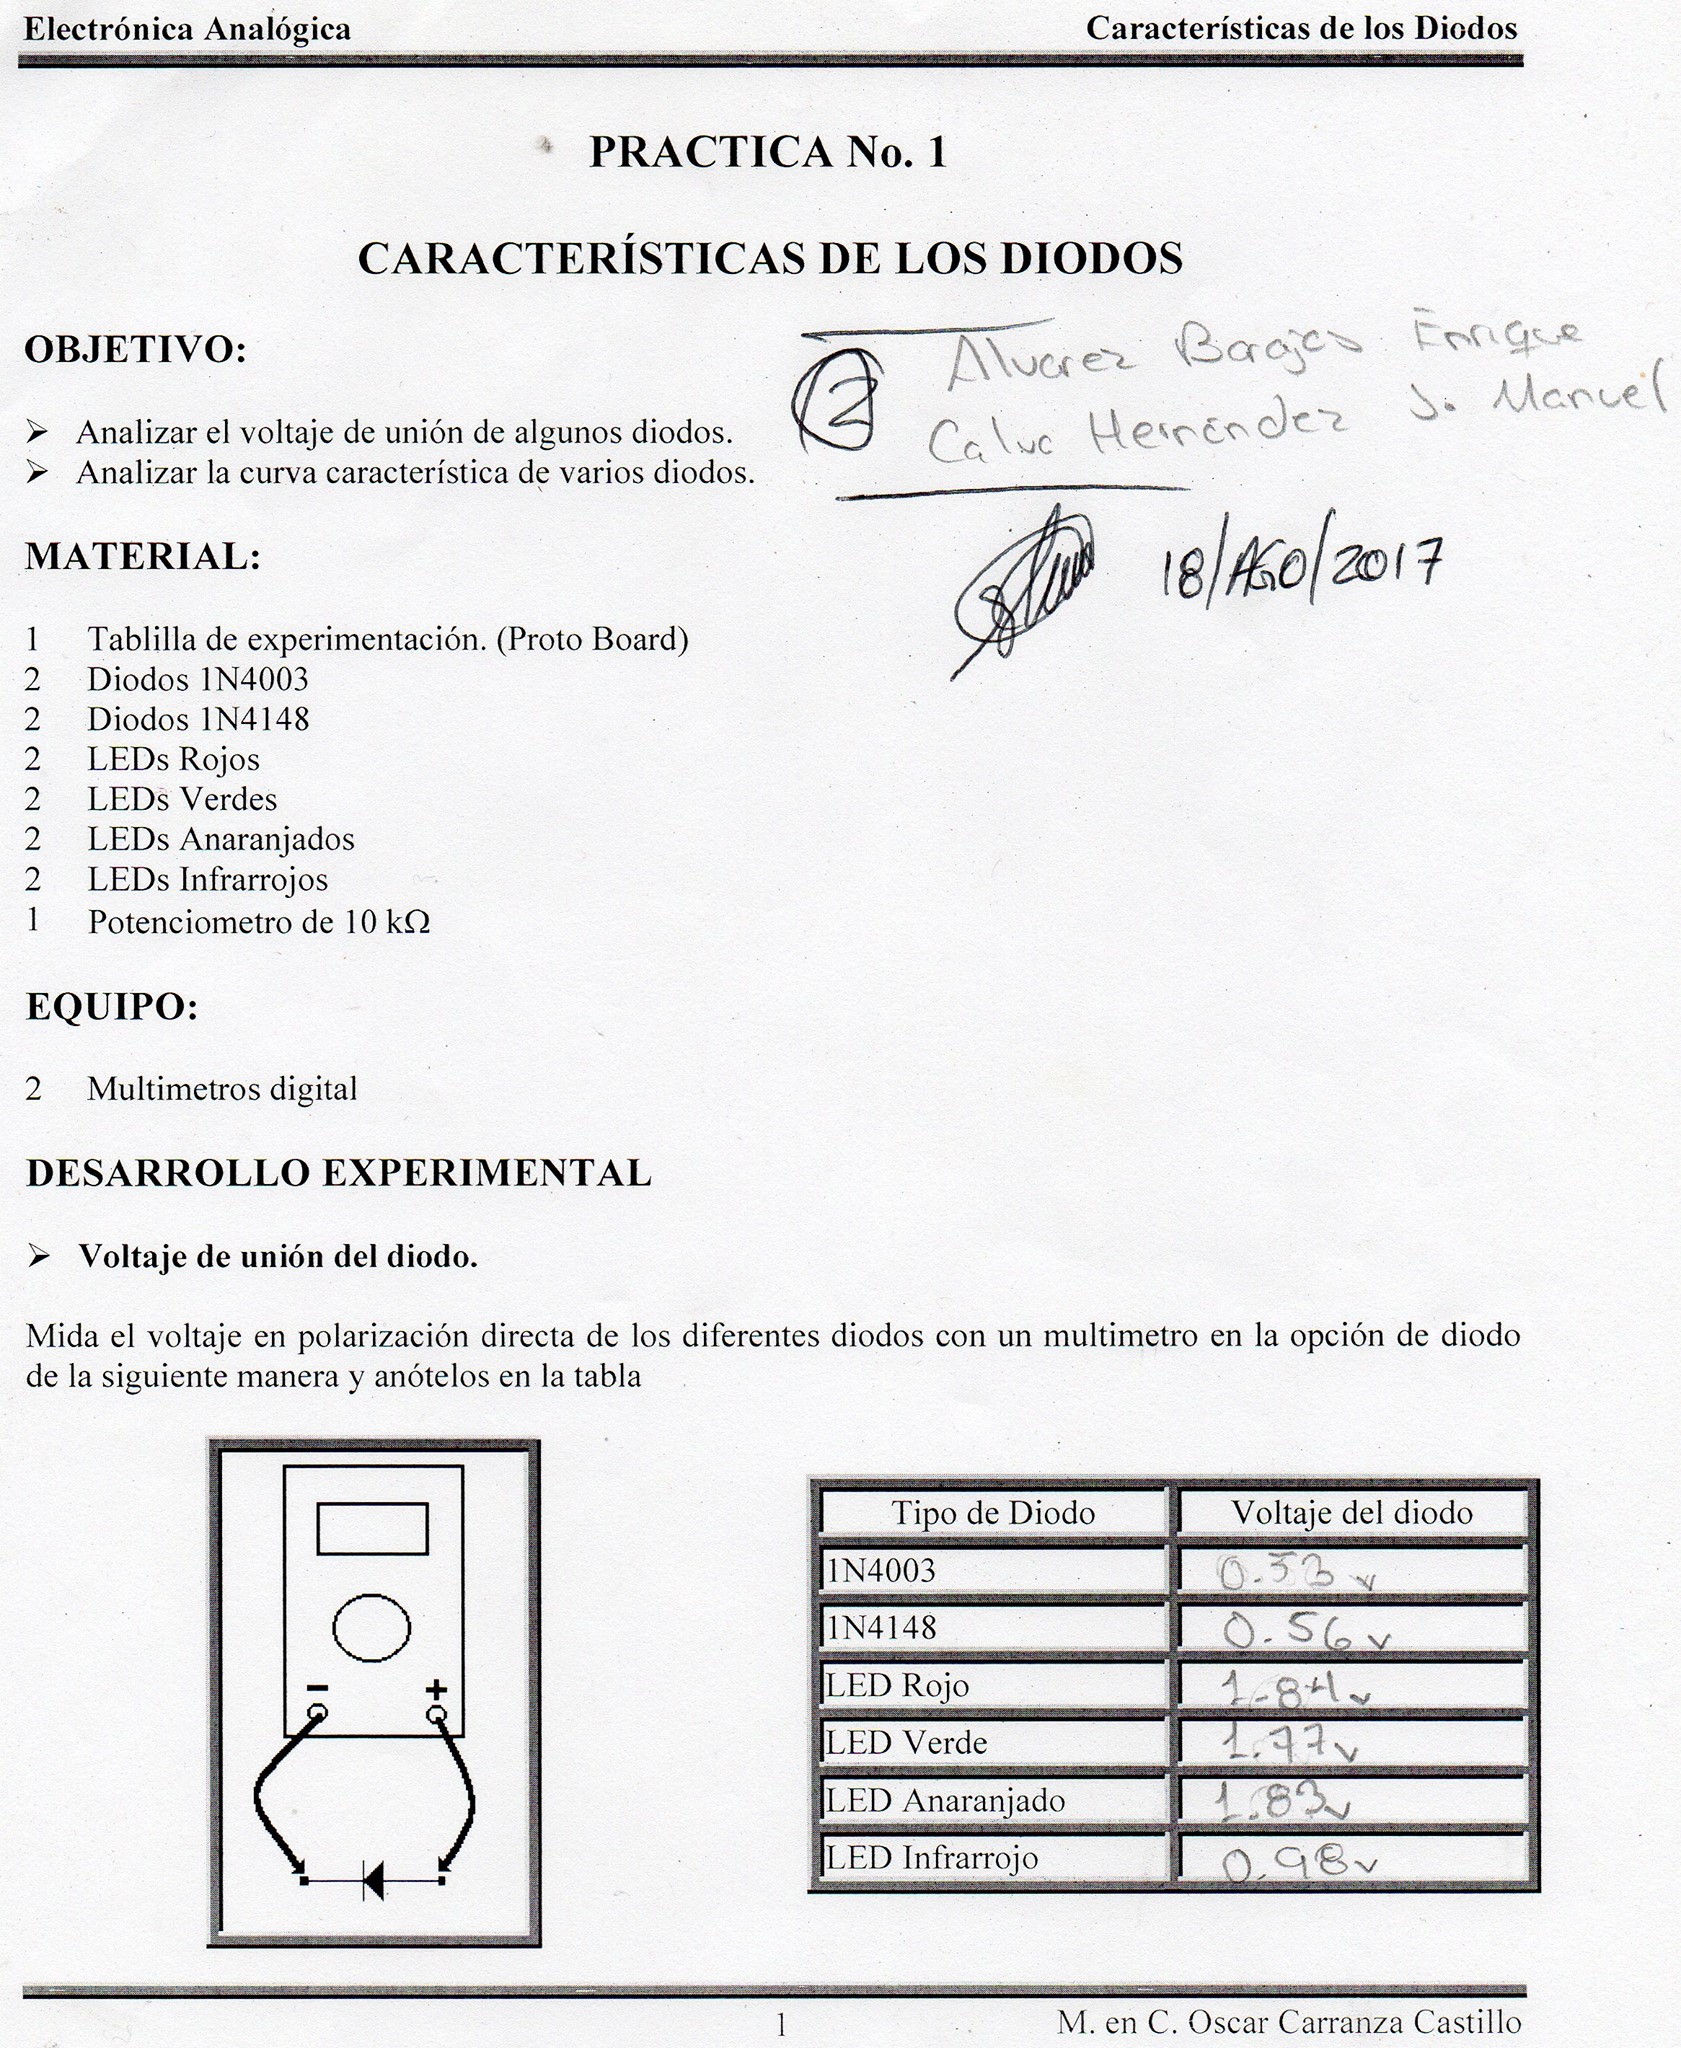 Electrónica Analógica Características de los Diodos
PRACTICA No. 1
CARACTERÍSTICAS DE LOS DIODOS
OBJETIVO:
Alvarez Barajas Enrique
2 Calva Hernández J. Manuel
➢ Analizar el voltaje de unión de algunos diodos.
➢ Analizar la curva característica de varios diodos.
18/AGO/2017
MATERIAL:
1 Tablilla de experimentación. (Proto Board)
2 Diodos 1N4003
2 Diodos 1N4148
2 LEDs Rojos
2 LEDs Verdes
2 LEDs Anaranjados
2 LEDs Infrarrojos
1 Potenciometro de 10 kΩ
EQUIPO:
2 Multimetros digital
DESARROLLO EXPERIMENTAL
➢ Voltaje de unión del diodo.
Mida el voltaje en polarización directa de los diferentes diodos con un multimetro en la opción de diodo
de la siguiente manera y anótelos en la tabla
- +
Tipo de Diodo Voltaje del diodo
1N4003 0.53 v
1N4148 0.56 v
LED Rojo 1.84 v
LED Verde 1.77 v
LED Anaranjado 1.83 v
LED Infrarrojo 0.98 v
1 M. en C. Oscar Carranza Castillo